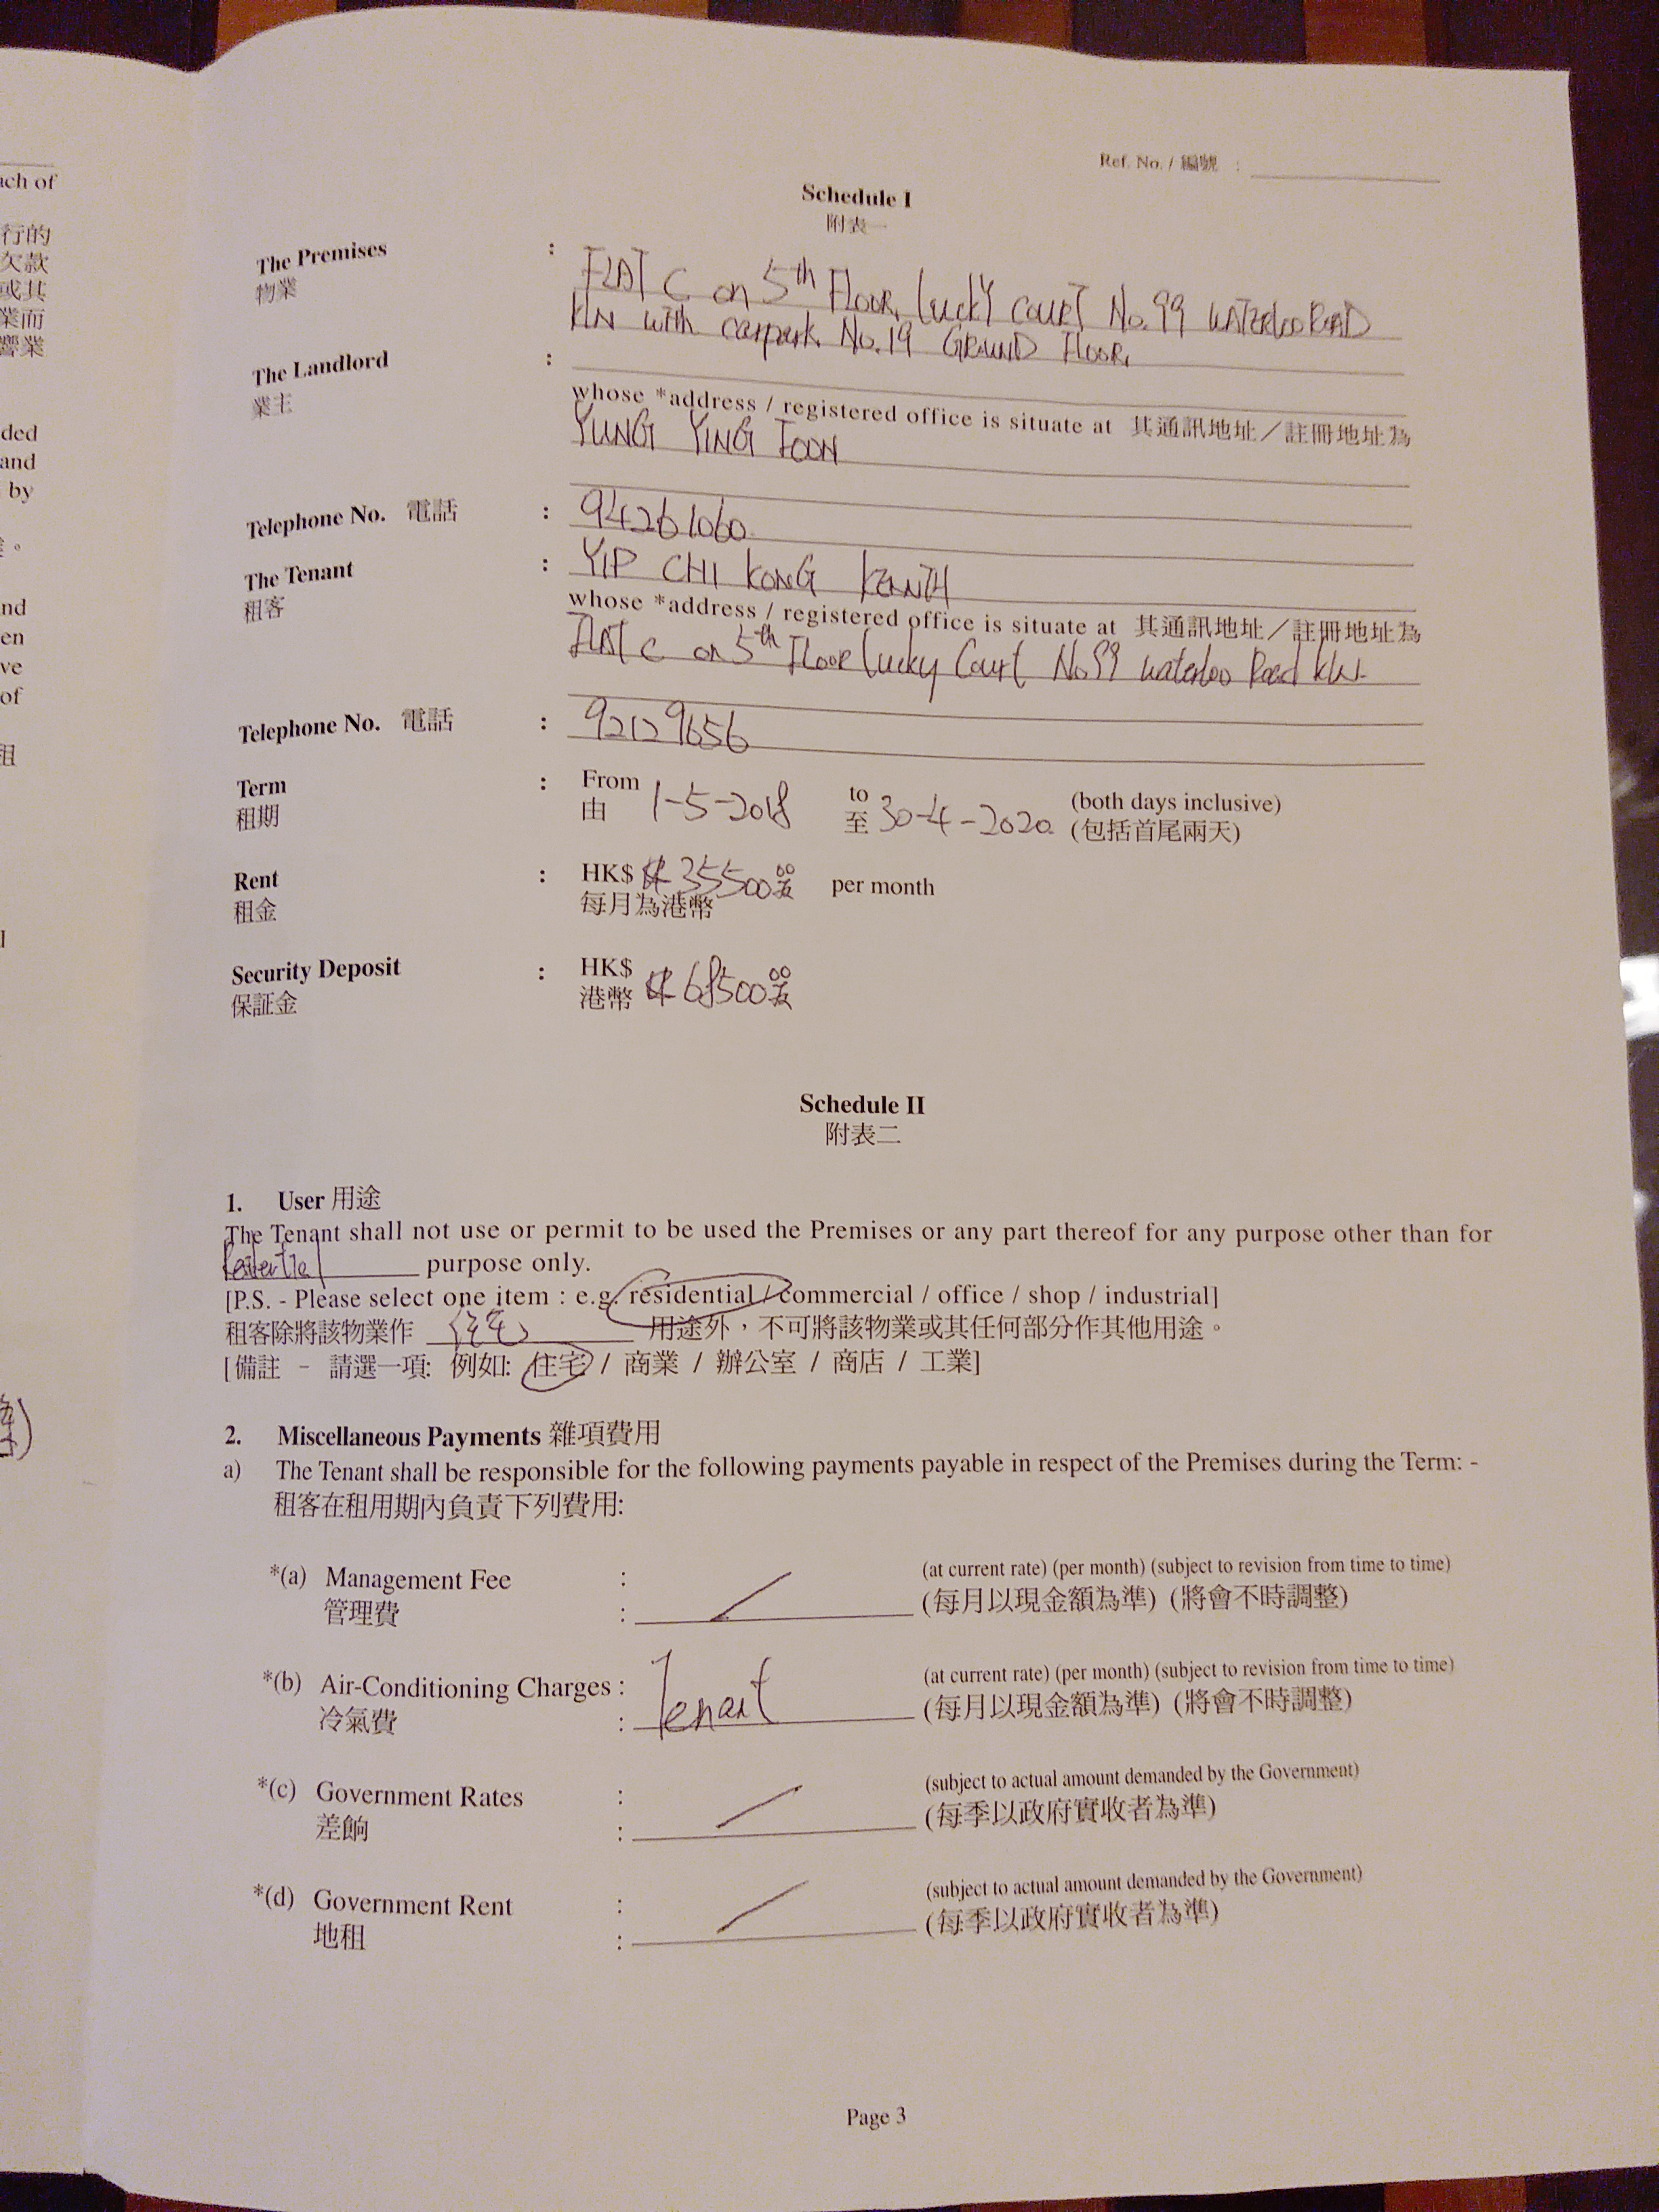 ach of
行的
欠款
或其
業而
響業
ded
and
by
。
nd
en
ve
of
租
Ref. No. / 編號 :
Schedule I
附表一
The Premises : FLAT C on 5th FLOOR, Lucky COURT No. 99 WATERLOO ROAD
物業 KLN with carpark No. 19 GROUND FLOOR,
The Landlord :
業主
whose *address / registered office is situate at 其通訊地址／註冊地址為
YUNG YING FOON
Telephone No. 電話 : 94261060
The Tenant : YIP CHI KONG
租客
whose *address / registered office is situate at 其通訊地址／註冊地址為
FLAT C on 5th Floor Lucky Court No 99 Waterloo Road KLN
Telephone No. 電話 : 92129656
Term : From 1-5-2018 to 30-4-2020 (both days inclusive)
租期 由 至 (包括首尾兩天)
Rent : HK$ 35500 00 per month
租金 每月為港幣
Security Deposit : HK$ 68500 00
保証金 港幣
Schedule II
附表二
1. User 用途
The Tenant shall not use or permit to be used the Premises or any part thereof for any purpose other than for
purpose only.
[P.S. - Please select one item : e.g. residential / commercial / office / shop / industrial]
租客除將該物業作 住宅 用途外，不可將該物業或其任何部分作其他用途。
[備註 – 請選一項: 例如: 住宅 / 商業 / 辦公室 / 商店 / 工業]
2. Miscellaneous Payments 雜項費用
a) The Tenant shall be responsible for the following payments payable in respect of the Premises during the Term: -
租客在租用期內負責下列費用:
*(a) Management Fee : (at current rate) (per month) (subject to revision from time to time)
管理費 : (每月以現金額為準) (將會不時調整)
*(b) Air-Conditioning Charges : Tenant (at current rate) (per month) (subject to revision from time to time)
冷氣費 : (每月以現金額為準) (將會不時調整)
*(c) Government Rates : (subject to actual amount demanded by the Government)
差餉 : (每季以政府實收者為準)
*(d) Government Rent : (subject to actual amount demanded by the Government)
地租 : (每季以政府實收者為準)
Page 3